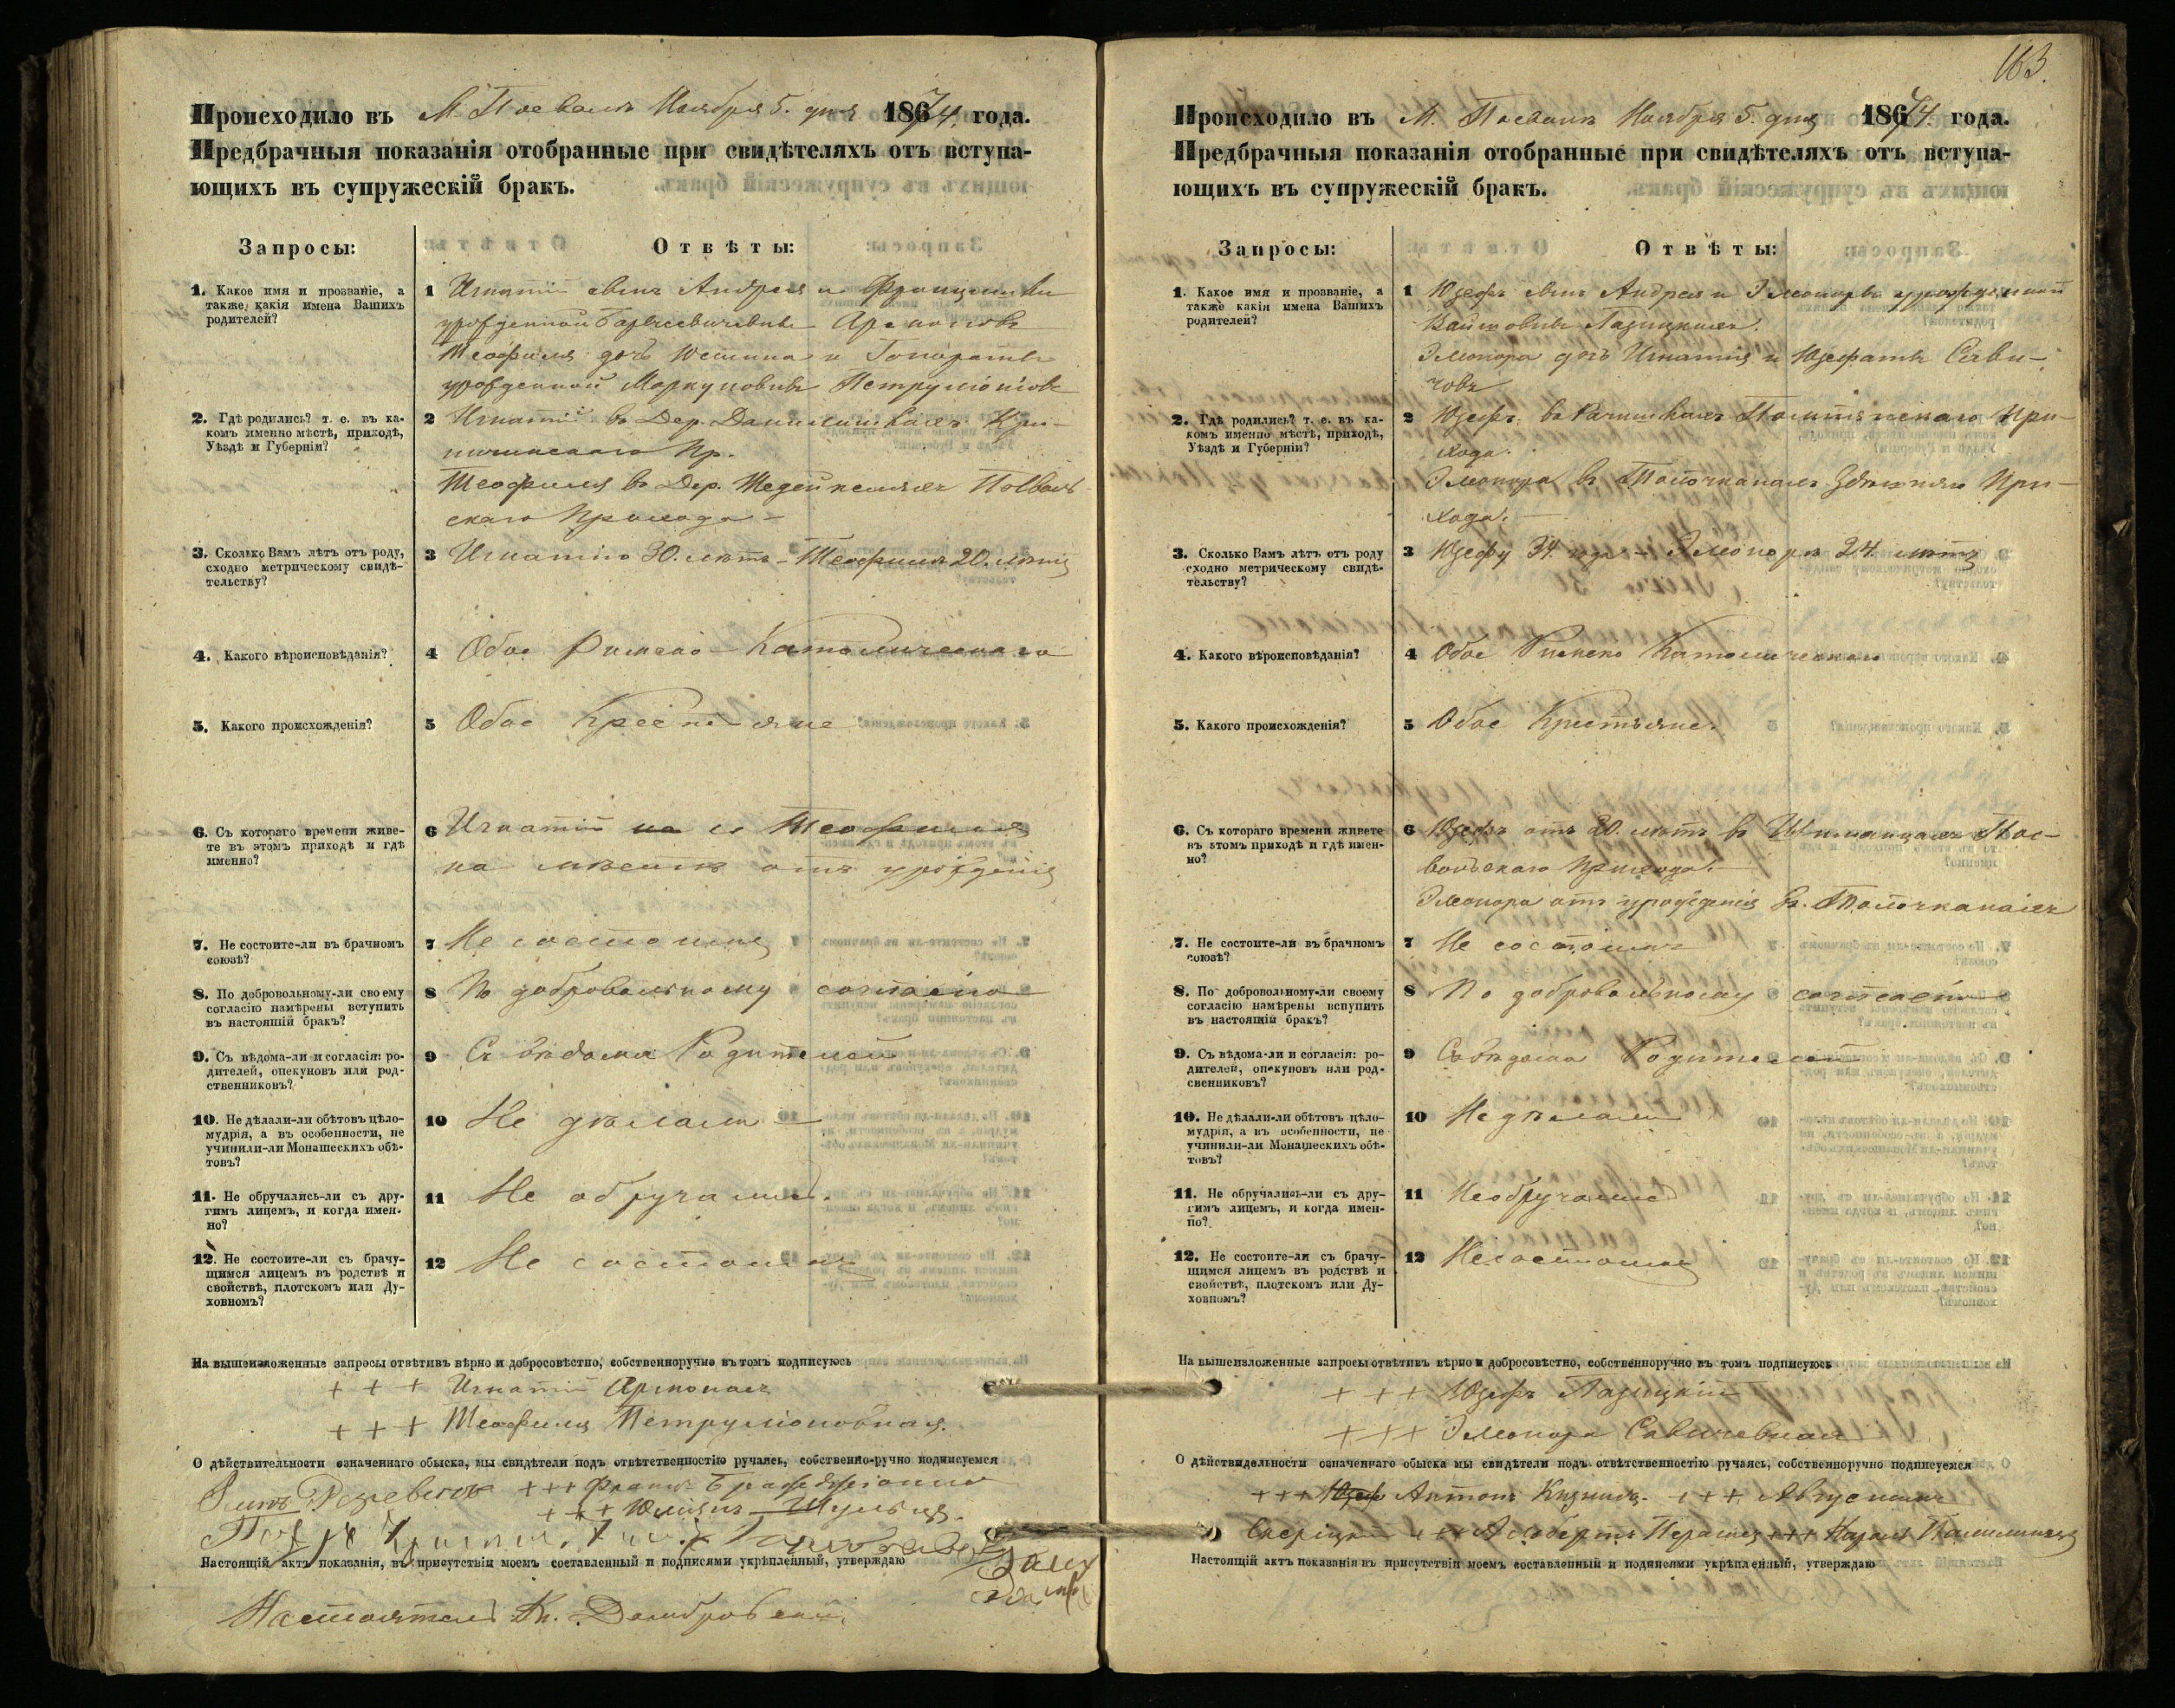 Происходило въ М. Посволь Ноября 5. дня 1874. года.
Предбрачныя показанія отобранные при свидѣтеляхъ отъ вступа-
ющихъ въ супружескій бракъ.
Запросы:
Отвѣты:
1. Какое имя и прозваніе, а
также какія имена Вашихъ
родителей?
1 Игнатій сынъ Андрея и Францишки
урожденной
Теофиля дочь Юстина и Гонораты
урожденной Маркуновны Петрулiонiовъ
2. Гдѣ родились? т. е. въ ка-
комъ именно мѣстѣ, приходѣ,
Уѣздѣ и Губерніи?
2 Игнатій въ Дер. Данилишкахъ Кри-
ничинскаго Пр.
Теофиля въ Дер. Медейкемяхъ Посволь-
скаго Прихода
3. Сколько Вамъ лѣтъ отъ роду,
сходно метрическому свидѣ-
тельству?
3 Игнатію 30. лѣтъ – Теофили 20. лѣтъ
4. Какого вѣроисповѣданія?
4 Обое Римско-Католическаго
5. Какого происхожденія?
5 Обое Крестьяне
6. Съ котораго времени живе-
те въ этомъ приходѣ и гдѣ
именно?
6 Игнатій и Теофиля
на мѣстѣ отъ урожденія
7. Не состоите-ли въ брачномъ
союзѣ?
7 Не состоимъ
8. По добровольному-ли своему
согласію намѣрены вступить
въ настоящій бракъ?
8 По добровольному согласію
9. Съ вѣдома-ли и согласія: ро-
дителей, опекуновъ или род-
ственниковъ?
9 Съ вѣдома Родителей
10. Не дѣлали-ли обѣтовъ цѣло-
мудрія, а въ особенности, не
учинили-ли Монашескихъ обѣ-
товъ?
10 Не дѣлали
11. Не обручались-ли съ дру-
гимъ лицемъ, и когда имен-
но?
11 Не обручались.
12. Не состоите-ли съ брачу-
щимся лицемъ въ родствѣ и
свойствѣ, плотскомъ или Ду-
ховномъ?
12 Не состоимъ
На вышеизложенные запросы отвѣтивъ вѣрно и добросовѣстно, собственноручно въ томъ подписуюсь
+ + + Игнатій Армонасъ
+ + + Теофиля Петрулiоновная.
О дѣйствительности означеннаго обыска, мы свидѣтели подъ отвѣтственностію ручаясь, собственно-ручно подписуемся
+++ Францъ
+++ Юліянъ Шульцъ.
Настоящій актъ показанія, въ присутствіи моемъ составленный и подписями укрѣпленный, утверждаю
Настоятель Кс. Домбровскій.
163.
Происходило въ М. Посволь Ноября 5. дня 1874. года.
Предбрачныя показанія отобранные при свидѣтеляхъ отъ вступа-
ющихъ въ супружескій бракъ.
Запросы:
Отвѣты:
1. Какое имя и прозваніе, а
также какія имена Вашихъ
родителей?
1 Юзефъ сынъ Андрея и Элеоноры урожденной
Вайтковны Лазицкихъ.
Элеонора дочь Игнатія и Юзефаты Сави-
човъ
2. Гдѣ родились? т. е. въ ка-
комъ именно мѣстѣ, приходѣ,
Уѣздѣ и Губерніи?
2 Юзефъ въ При-
хода.
Элеонора въ При-
хода.
3. Сколько Вамъ лѣтъ отъ роду
сходно метрическому свидѣ-
тельству?
3 Юзефу 34. года – Элеонора 24. лѣтъ
4. Какого вѣроисповѣданія?
4 Обое Римско Католическаго
5. Какого происхожденія?
5 Обое Крестьяне.
6. Съ котораго времени живете
въ этомъ приходѣ и гдѣ имен-
но?
6 Юзефъ отъ 20. лѣтъ въ Пос-
вольскаго Прихода.
Элеонора отъ урожденія въ
7. Не состоите-ли въ брачномъ
союзѣ?
7 Не состоимъ
8. По добровольному-ли своему
согласію намѣрены вспупить
въ настоящій бракъ?
8 По добровольному согласію
9. Съ вѣдома-ли и согласія: ро-
дителей, опекуновъ или род-
свенниковъ?
9 Съ вѣдома Родителей
10. Не дѣлали-ли обѣтовъ цѣло-
мудрія, а въ особенности, не
учинили-ли Монашескихъ обѣ-
товъ?
10 Не дѣлали
11. Не обручались-ли съ дру-
гимъ лицемъ, и когда имен-
но?
11 Не обручались
12. Не состоите-ли съ брачу-
щимся лицемъ въ родствѣ и
свойствѣ, плотскомъ или Ду-
ховномъ?
12 Не состоимъ
На вышеизложенные запросы отвѣтивъ вѣрно и добросовѣстно, собственноручно въ томъ подписуюсь
+ + + Юзефъ Лазицкій
+++ Элеонора Савичевная
О дѣйствидельности означеннаго обыска мы свидѣтели подъ отвѣтственностію ручаясь, собственноручно подписуемся
+++ Антонъ +++ Августинъ
+++ Адольбертъ +++
Настоящій актъ показанія въ присутствіи моемъ составленный и подписями укрѣпленный, утверждаю